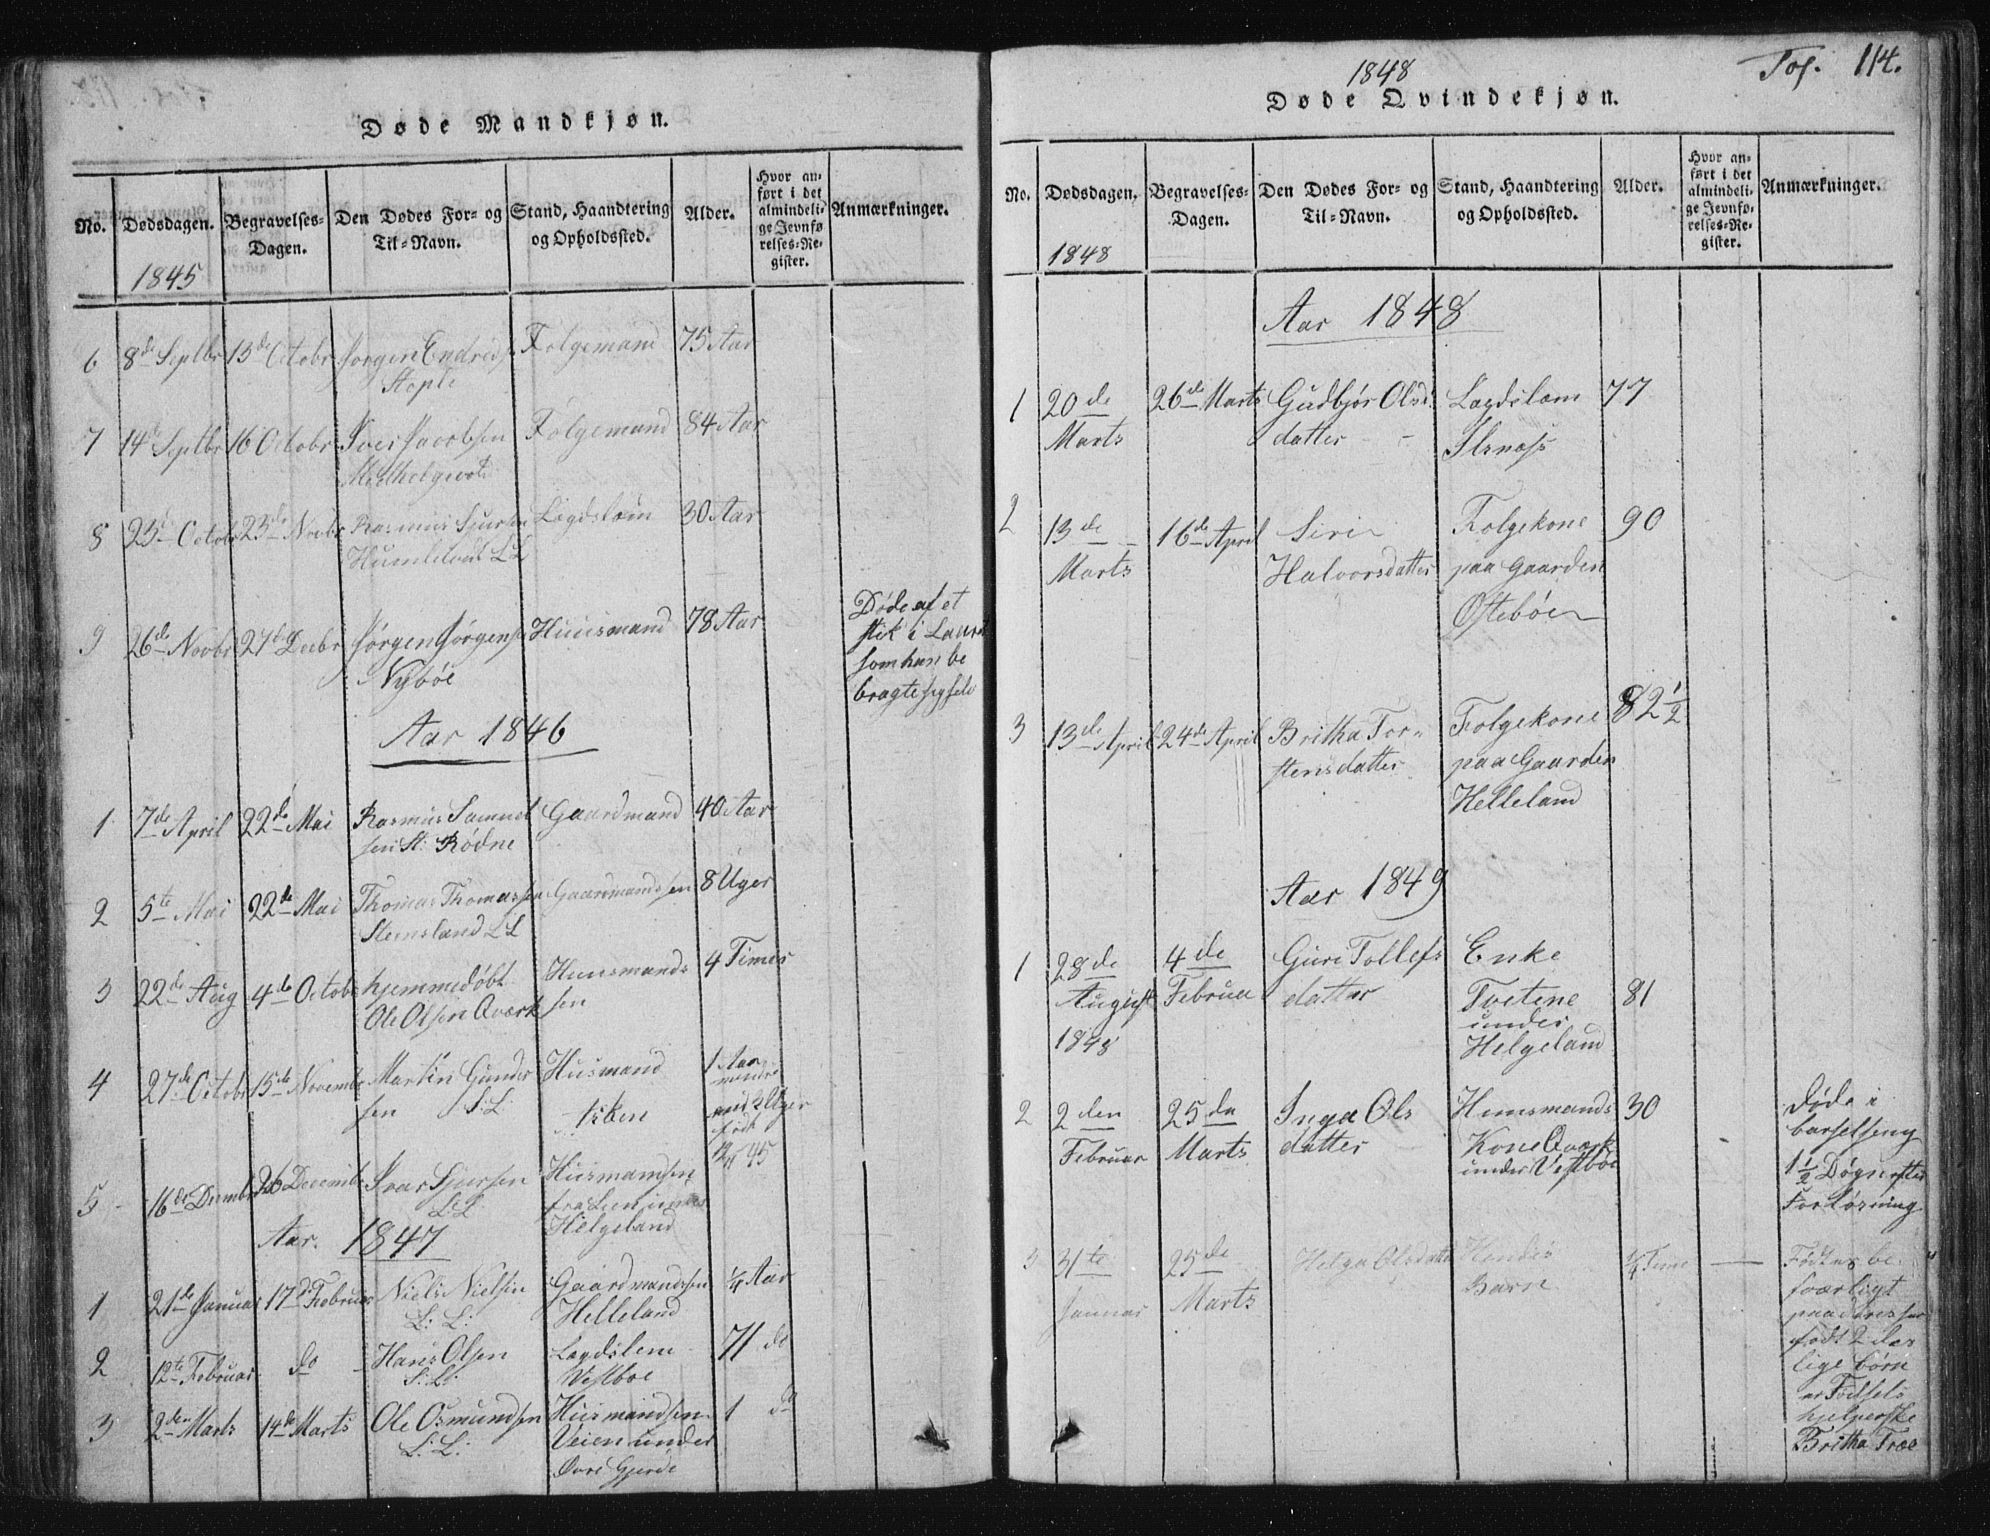 Døde Mandkjøn.
No. Dødsdagen. Begravelses-Dagen. Den Dødes For- og Til-Navn. Stand, Haandtering og Opholdssted. Alder. Hvor anført i det almindelige Jevnførelses-Register. Anmærkninger.
1845
6 8de Septbr 13de Octobr Jørgen Endreds. Folgemand 75 Aar
Stople
7 14de Septbr 16 Octobr Iver Jacobsen Folgemand 84 Aar
8 23de Octobr 23de Novbr Rasmus Sjursen Lægdslem 30 Aar
L.L
9 26de Novbr 27de Decbr Jørgen Jørgensen Huusmand 78 Aar
Nybøe
Døde af et
stik i Laaret
som han be
bragte sig selv
Aar 1846
1 7de April 22de Mai Rasmus Samuel Gaardmand 40 Aar
sen St: Rødne
2 5te Mai 22de Mai Thomas Thomassen Gaardmandssøn 8 Uger
Stemsland L L
3 22de Aug 4de Octobr hjemmedøbt Huusmands 4 Timer
Ole Olsen Qværk sen
4 27de Octobr 15de Novembr Martin Gunder Husmand 1 Aar
sen S:L
5 16de Decembr 26 Decembr Ivar Sjursen Husmandsen
L.L.
Helgeland
Aar. 1847
1 21de Januar 17de Februar Niels Nielsen Gaardmandssøn ¼ Aar
L: L: Helleland
2 12te Februar do Hans Olsen Lægdslem 71 do
S:L: Vestboe
3 2den Marts 14de Marts Ole Osmundsen Husmandsen 1 do
L: L: Veien under
Øvre Gjerde
Fol. 114.
1848
Døde Qvindekjøn.
No. Dødsdagen. Begravelses-Dagen. Den Dødes For- og Til-Navn. Stand, Haandtering og Opholdssted. Alder. Hvor anført i det almindelige Jevnførelses-Register. Anmærkninger.
1848
Aar 1848
1 20de 26de Marts Gudbjør Olsd: Lægdslem 77
Marts datter
2 13de 16de April Siri Folgekone 90
Marts Halvorsdatter paa Gaarden
Østebøe
3 13de April 24de April Britha Tor- Folgekone 82 ½
stensdatter paa Gaarden
Helleland
Aar 1849
1 28de 4de Guri Tollefs Enke
August Februar datter Tveitene 81
under
1848 Helgeland
2 2den 25de Inga Ols Huusmands 30
Februar Marts datter Kone Qværk
under Vestbøe
Døde i
barselseng
1 ½ Døgn efter
Forløsning
3 31te 25de Helga Olsdatter Hendes ¼ Time
Januar Marts Barn
født 2 da
lige børn
hjelperske
Britha Træe